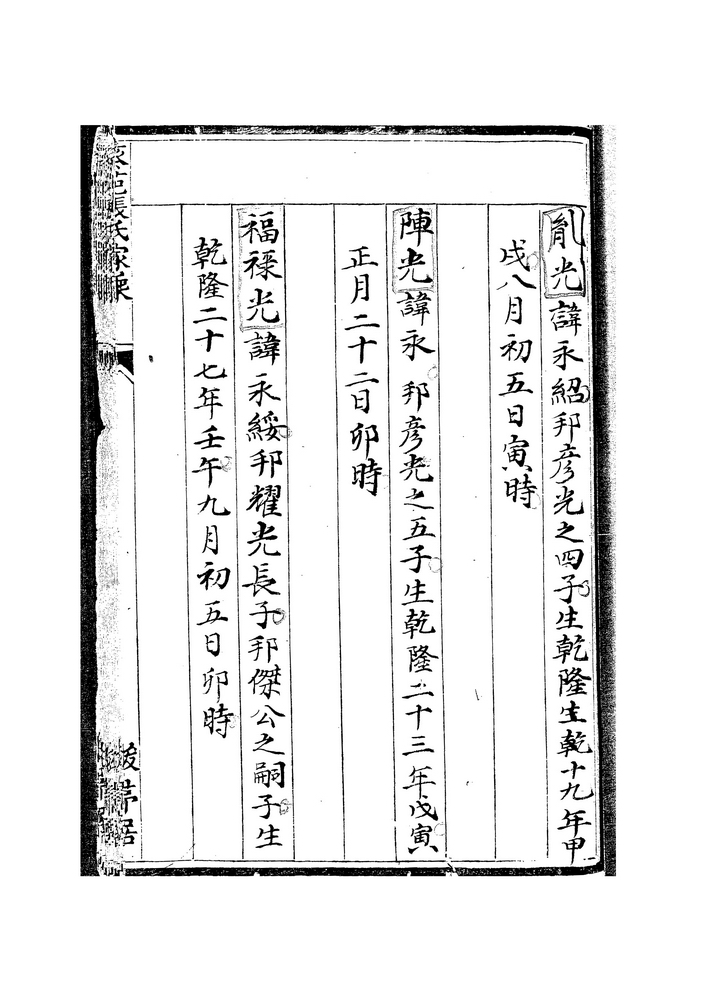 胤光諱永紹邦彦光之四子生乾隆生乾十九年甲
戌八月初五日寅時
陣光諱永 邦彦光之五子生乾隆二十三年戊寅
正月二十二日卯時
福祿光諱永綏邦耀光長子邦傑公之嗣子生
乾隆二十七年壬午九月初五日卯時
張氏家乘